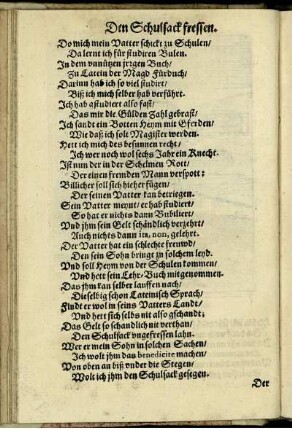 Den Schulsack fressen.
Do mich mein Vatter schickt zu Schulen/
Da lernt ich für studiren Bulen.
In dem vnnützen jrzgen Buch/
Zu Latein der Magd Fürduch/
Darinn hab ich so viel studirt/
Biß ich mich selber hab verführt.
Ich hab gstudiert also fast/
Das mir die Gülden Zahl gebrast/
Ich sandt ein Botten Heym mit Gferden/
Wie daß ich solt Magister werden.
Hett ich mich des besunnen recht/
Ich wer noch wol sechs Jahr ein Knecht.
Ist nun der in der Schelmen Rott/
Der einen fremden Mann verspott:
Billicher soll sich hieher fügen/
Der seinen Vatter kan betriegen.
Sein Vatter meynt/ er hab studiert/
So hat er nichts dann Bubiliert/
Vnd jhm sein Gelt schändlich verzehrt/
Auch nichts dann in, nun, gelehrt.
Der Vatter hat ein schlechte freuwd/
Den sein Sohn bringt zu solchem leyd.
Vnd soll Heym von der Schulen kommen/
Vnd hett sein Lehr, Buch mitgenommen.
Das jhm kan selber lauffen nach/
Dieselbig schon Lateinisch Sprach/
Findt er wol in seins Vatters Landt/
Vnd hett sich selbs nit also gschandt;
Das Gelt so schandlich nit verthan/
Den Schulsack vngefressen lahn.
Wer er mein Sohn in solchen Sachen/
Ich wolt jhm das benedicite machen/
Von oben an biß vnder die Stegen/
Wolt ich jhm den Schulsack gesegen.
Der